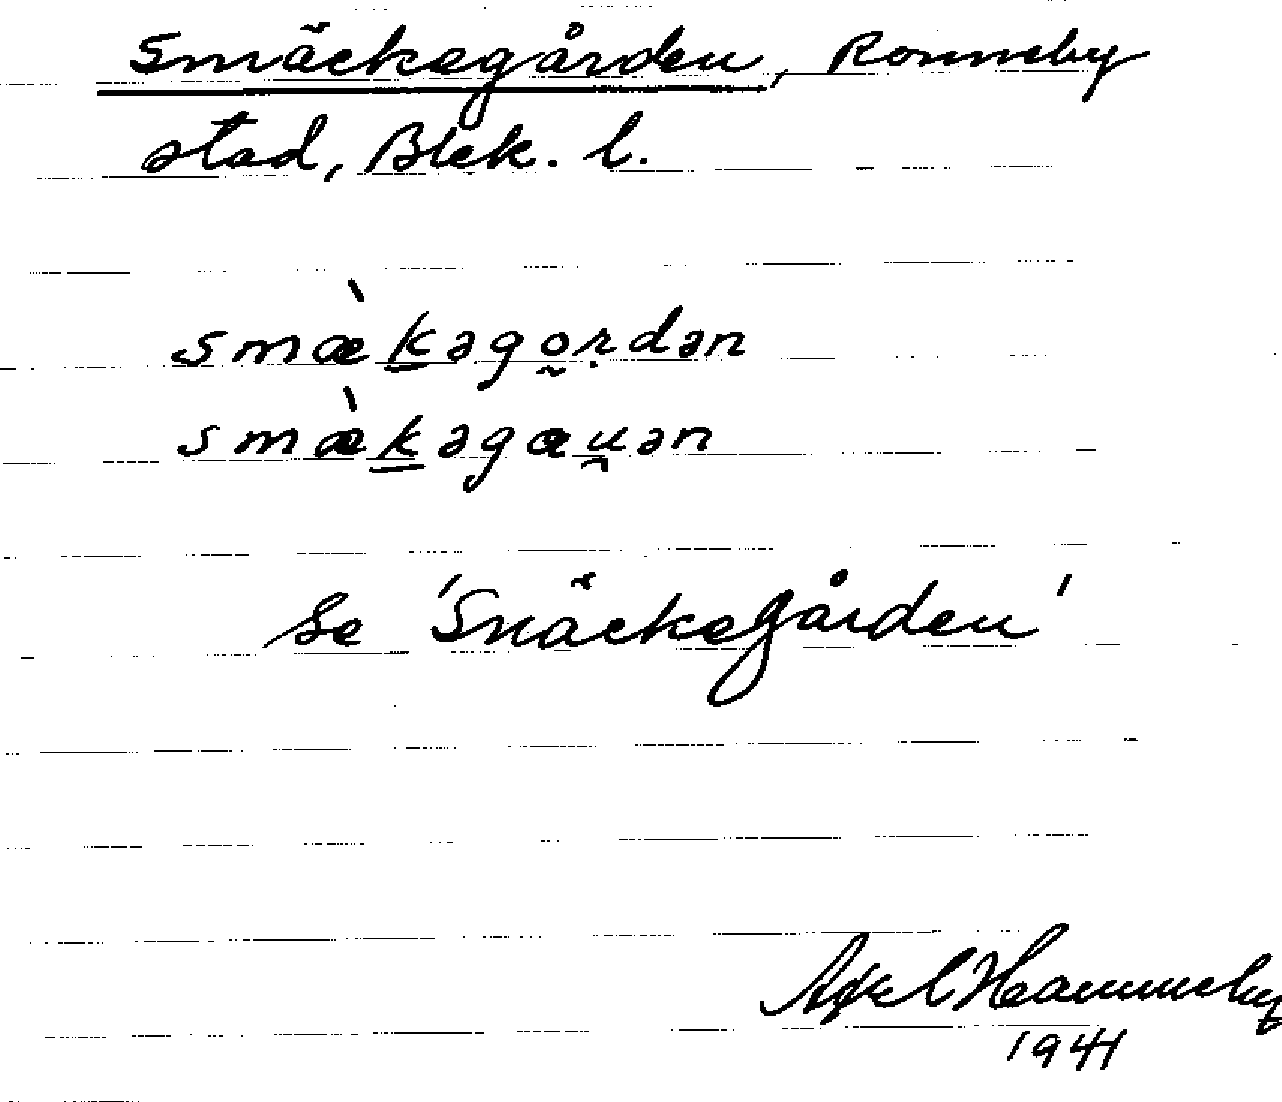 Smäckegården, Ronneby
stad, Blek. l.
smæ̀k̲əgo̰ṛdən
smæ̀k̲əgæu̯ən
Se 'Snäckegården'
Axel Hammeby
1941